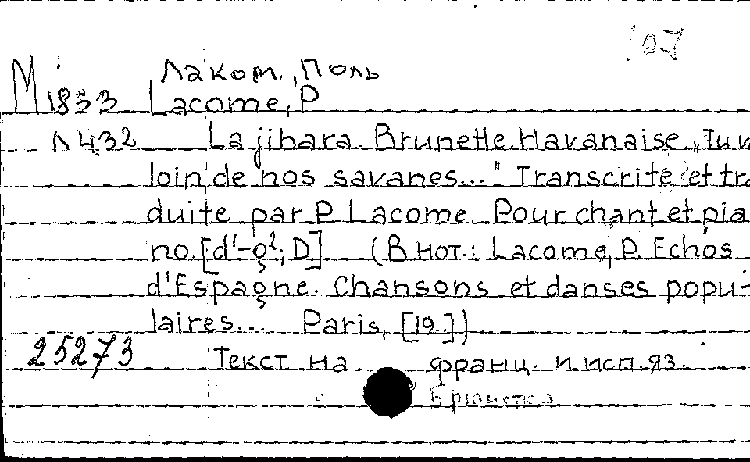 107
Лаком, Поль
M 1833 Lacome, P
Л432 La jibara. Brunette. Havanaise. „Tu v
loin de nos savanes..." Transcrite et tra
duite par P. Lacome. Pour chant et pia
no. [d¹-g²; D] (В нот.: Lacome, P. Echos
d'Espagne. Chansons et danses popu-
laires... Paris, [19.])
25273 Текст на франц. и исп. яз.
Брюнетка